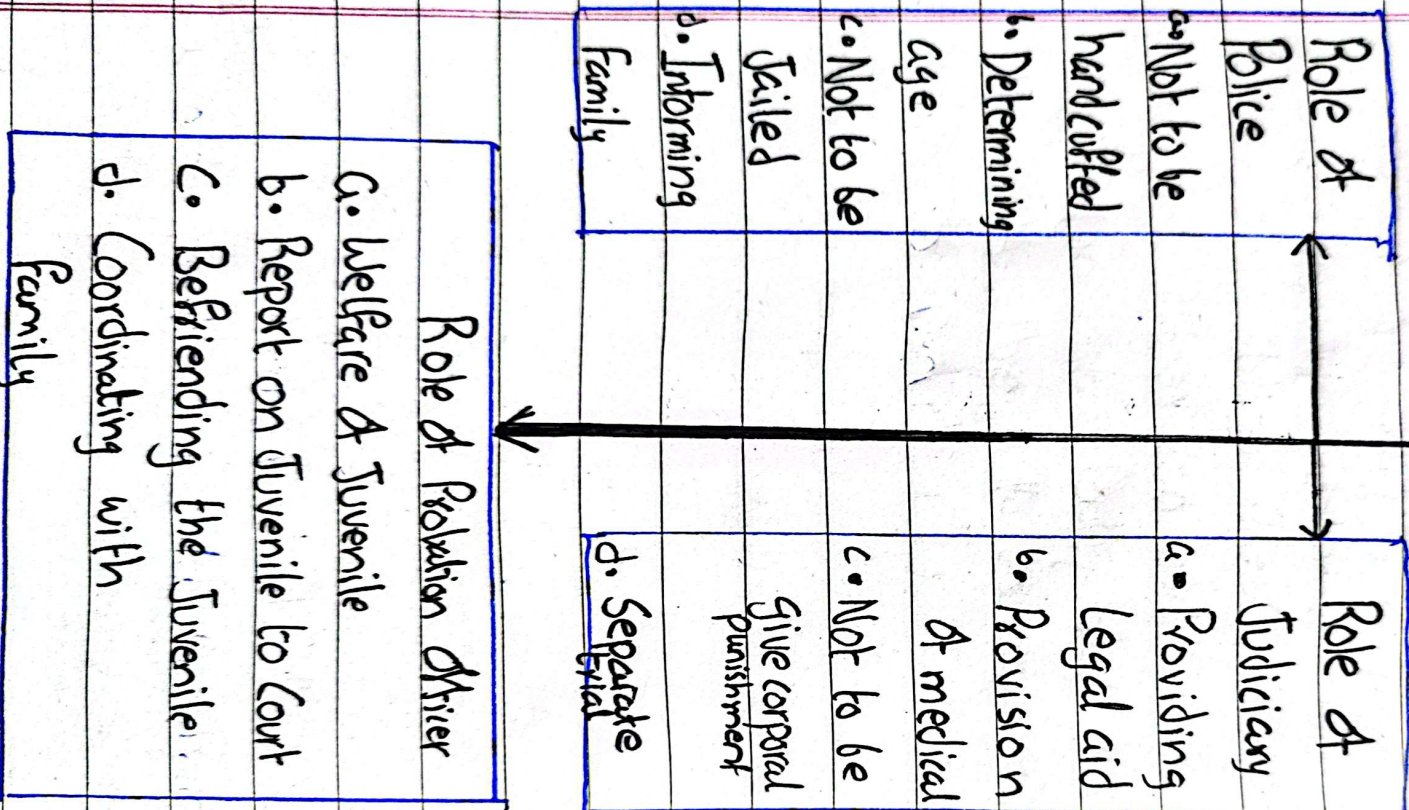 Role of
Police
a. Not to be
handcuffed
b. Determining
age
c. Not to be
Jailed
d. Informing
Family
Role of
Judiciary
a. Providing
Legal aid
b. Provision
of medical
c. Not to be
Give corporal
punishment
d. Separate
trial
Role of Probation Officer
a. Welfare of Juvenile
b. Report on Juvenile to Court
c. Befriending the Juvenile.
d. Coordinating with
family